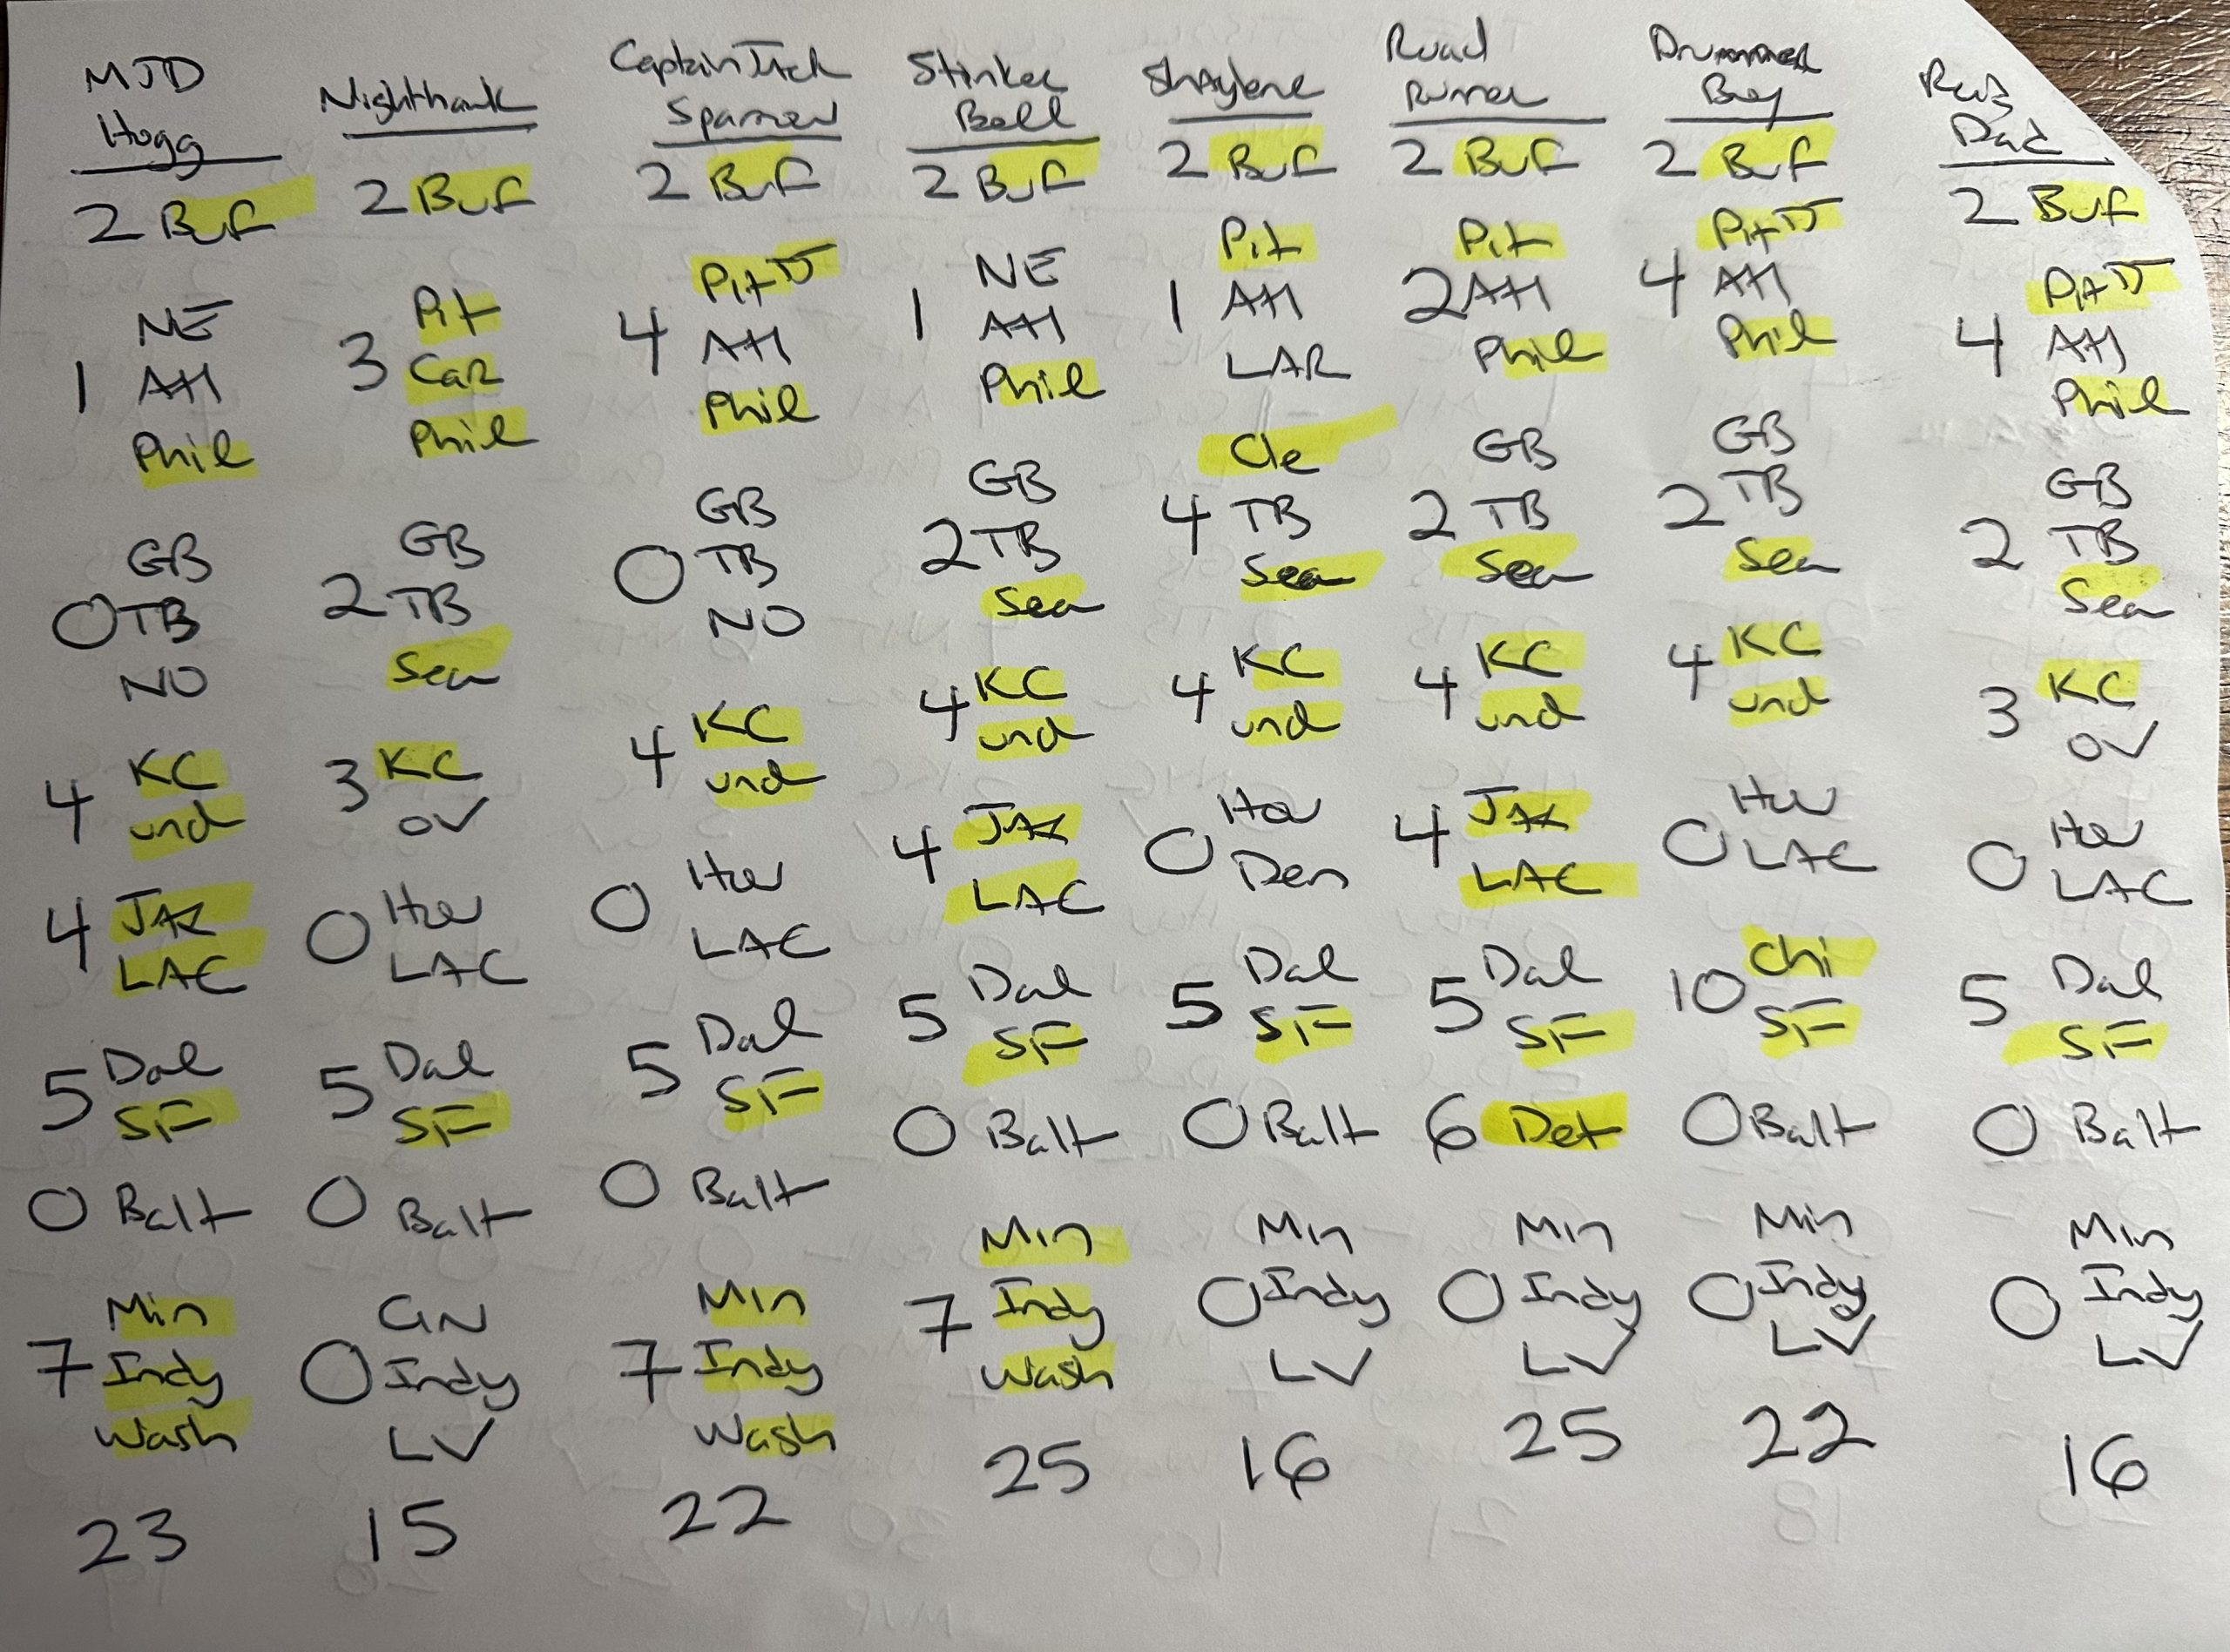 MJD
Hogg
2 Buf
NE
1 Atl
Phil
GB
0 TB
NO
4 KC
und
4 JAX
LAC
5 Dal
SF
0 Balt
Min
7 Indy
Wash
23
Nighthawk
2 Buf
Pit
3 Car
Phil
GB
2 TB
Sea
3 KC
OV
0 Hou
LAC
5 Dal
SF
0 Balt
0 Indy
LV
15
Captain Jack
Sparrow
2 Buf
Pit
4 Atl
Phil
GB
0 TB
NO
4 KC
und
0 Hou
LAC
5 Dal
SF
0 Balt
Min
7 Indy
Wash
22
Stinker
Bell
2 Buf
NE
1 Atl
Phil
GB
2 TB
Sea
4 KC
und
4 JAX
LAC
5 Dal
SF
0 Balt
Min
7 Indy
Wash
25
2 Buf
Pit
1 Atl
LAR
Cle
4 TB
Sea
4 KC
und
0 Hou
Den
5 Dal
SF
0 Balt
Min
0 Indy
LV
16
Road
Runner
2 Buf
Pit
2 Atl
Phil
GB
2 TB
Sea
4 KC
und
4 JAX
LAC
5 Dal
SF
6 Det
Min
0 Indy
LV
25
Drummer
Boy
2 Buf
Pit
4 Atl
Phil
GB
2 TB
Sea
4 KC
und
0 Hou
LAC
10 Chi
SF
0 Balt
Min
0 Indy
LV
22
Dad
2 Buf
Pit
4 Atl
Phil
GB
2 TB
Sea
3 KC
OV
0 Hou
LAC
5 Dal
SF
0 Balt
Min
0 Indy
LV
16